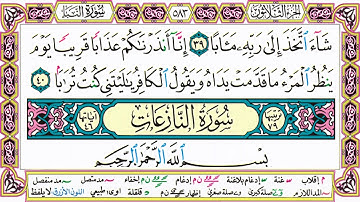 الجزء الثلاثون ٥٨٣ سورة النبإ
شَآءَ ٱتَّخَذَ إِلَىٰ رَبِّهِۦ مَـَٔابًا ٣٩ إِنَّآ أَنذَرۡنَٰكُمۡ عَذَابًا قَرِيبًا يَوۡمَ
يَنظُرُ ٱلۡمَرۡءُ مَا قَدَّمَتۡ يَدَاهُ وَيَقُولُ ٱلۡكَافِرُ يَٰلَيۡتَنِي كُنتُ تُرَٰبَۢا ٤٠
ترتيبها ٧٩ سُورَةُ النَّازِعَاتِ آياتها ٤٦
بِسۡمِ ٱللَّهِ ٱلرَّحۡمَٰنِ ٱلرَّحِيمِ